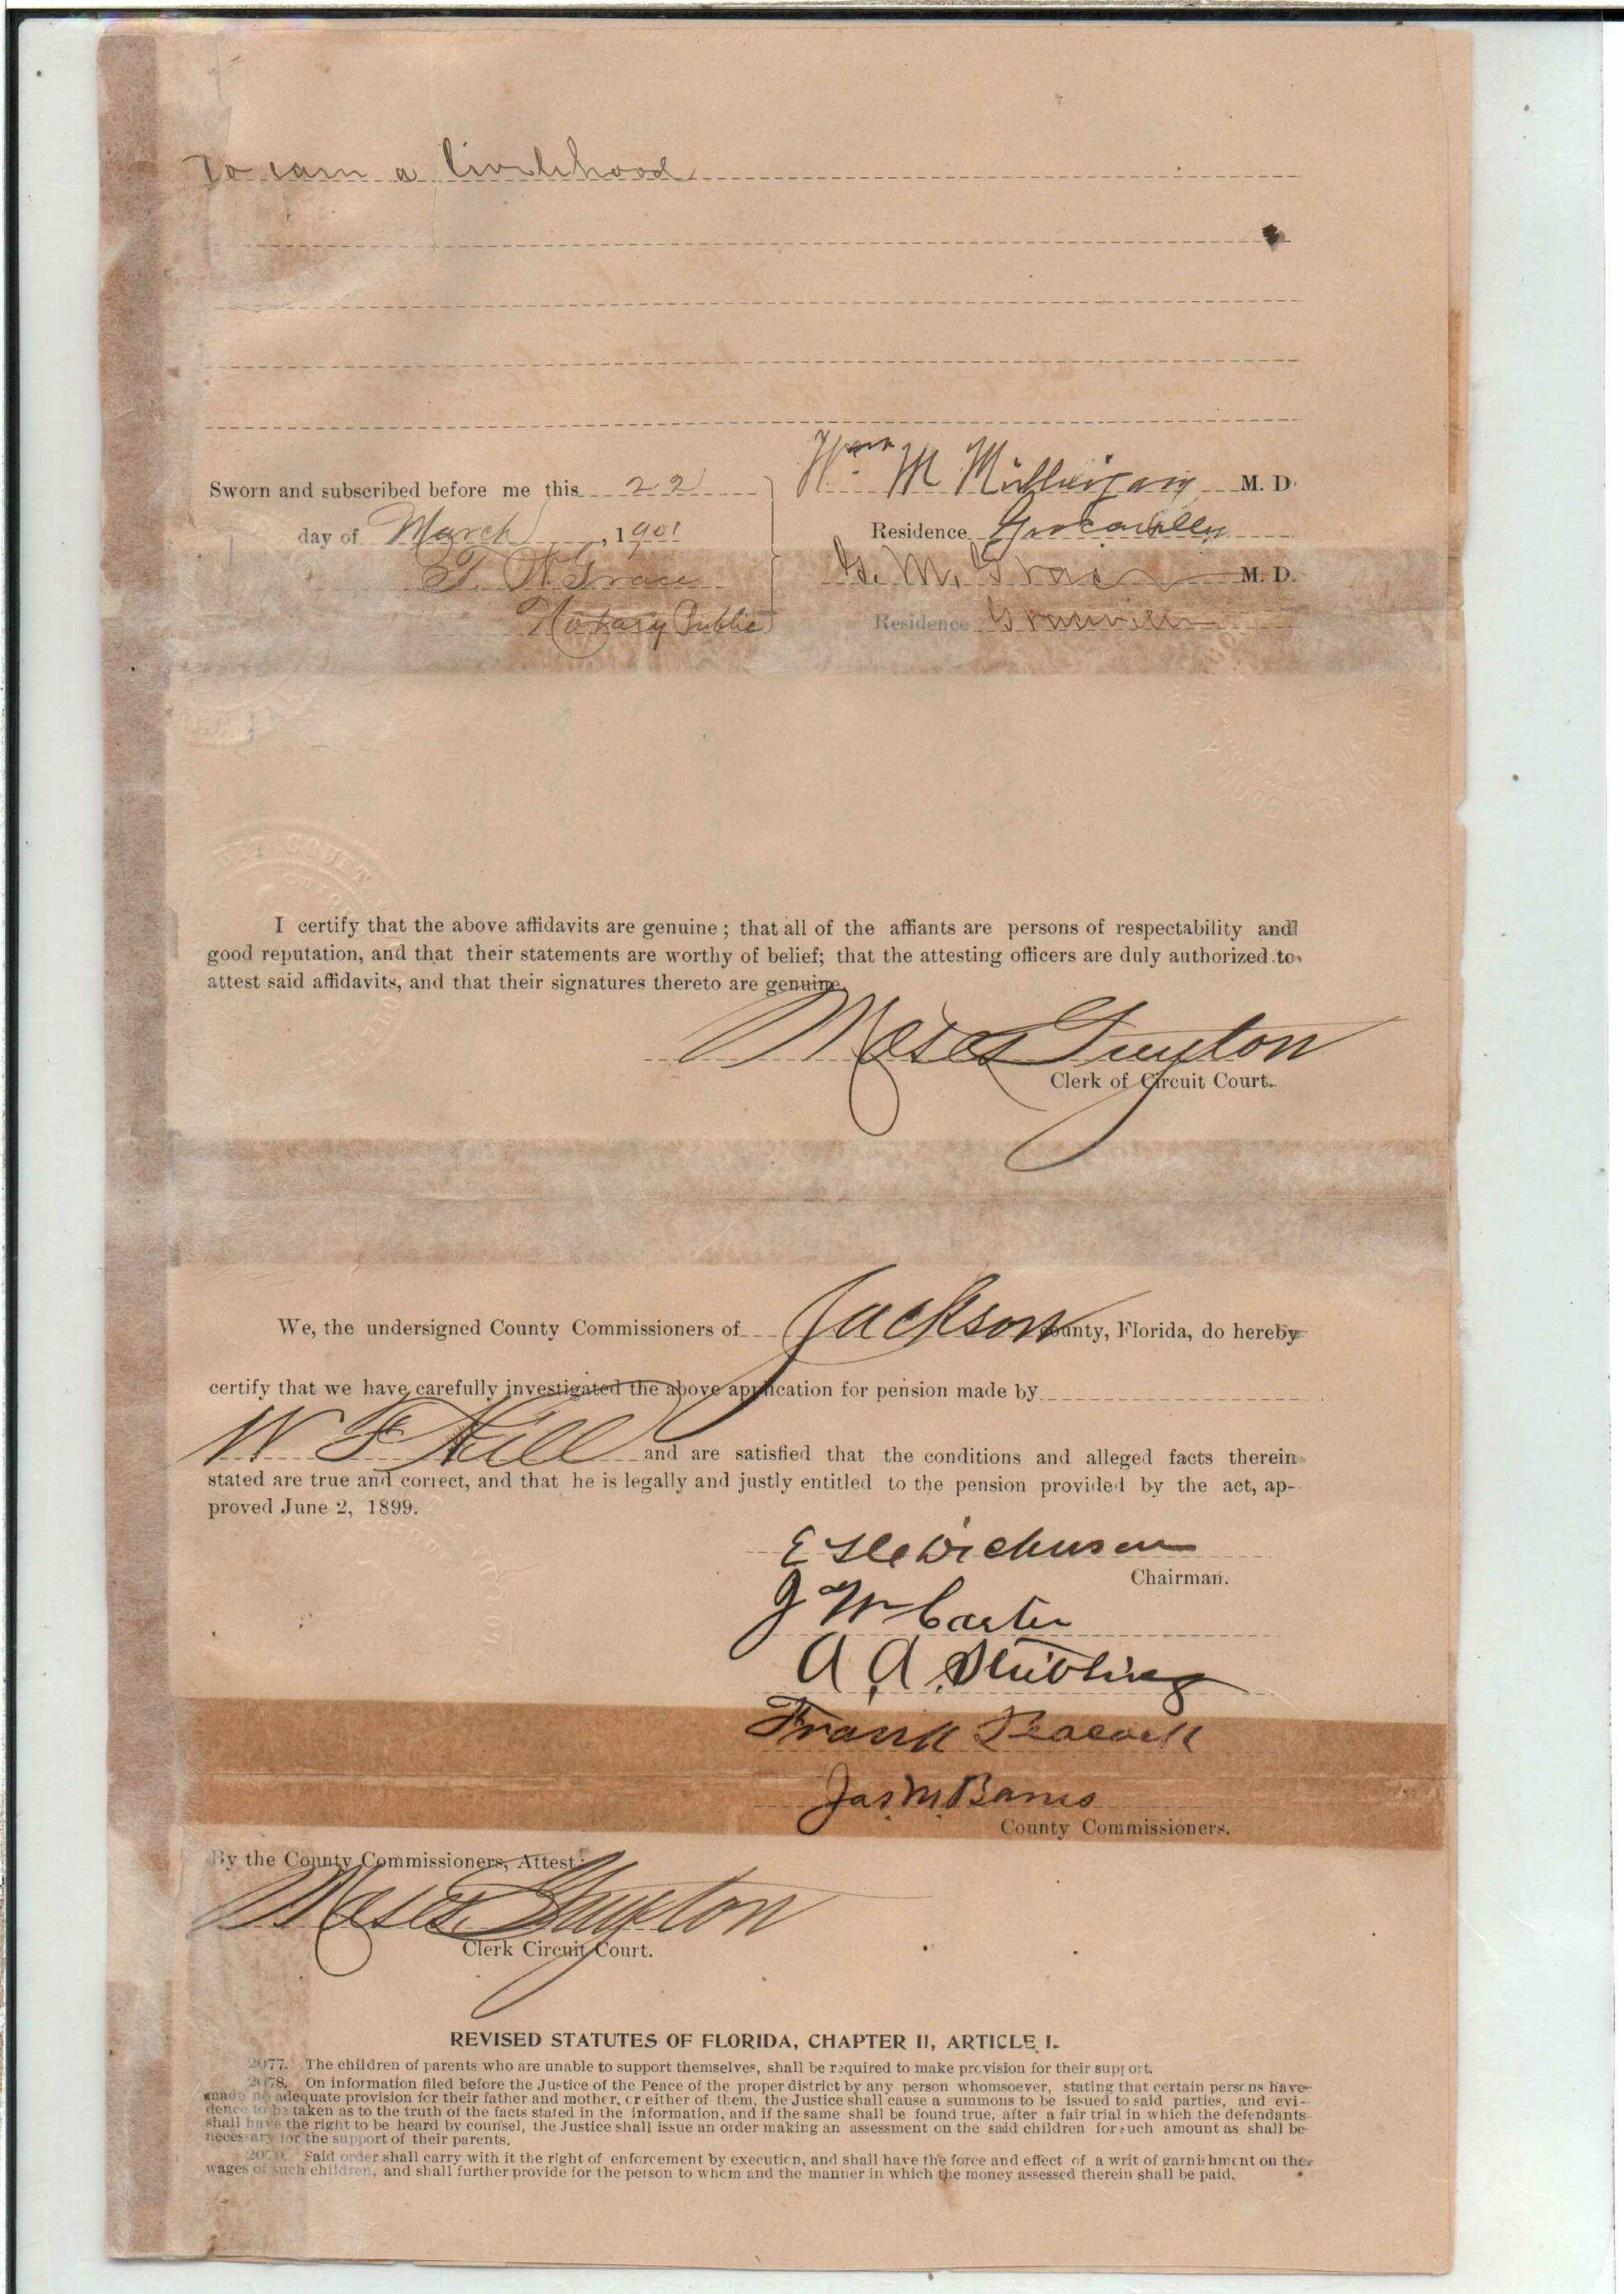 To earn a livelihood
Sworn and subscribed before me this 22
day of March, 1901
Notary Public
Wm M M. D.
Residence
G. M. Grace M. D.
Residence Graceville
COURT
I certify that the above affidavits are genuine; that all of the affiants are persons of respectability and
good reputation, and that their statements are worthy of belief; that the attesting officers are duly authorized to
attest said affidavits, and that their signatures thereto are genuine.
Moses Guyton
Clerk of Circuit Court.
We, the undersigned County Commissioners of Jackson County, Florida, do hereby
certify that we have carefully investigated the above application for pension made by
W F Hill and are satisfied that the conditions and alleged facts therein
stated are true and correct, and that he is legally and justly entitled to the pension provided by the act, ap-
proved June 2, 1899.
Chairman.
J W Carter
A. A. Stribling
Frank Peacock
Jas M. Barnes
County Commissioners.
By the County Commissioners, Attest:
Moses Guyton
Clerk Circuit Court.
REVISED STATUTES OF FLORIDA, CHAPTER II, ARTICLE I.
2077. The children of parents who are unable to support themselves, shall be required to make provision for their support.
2078. On information filed before the Justice of the Peace of the proper district by any person whomsoever, stating that certain persons have
made no adequate provision for their father and mother, or either of them, the Justice shall cause a summons to be issued to said parties, and evi-
dence to be taken as to the truth of the facts stated in the information, and if the same shall be found true, after a fair trial in which the defendants
shall have the right to be heard by counsel, the Justice shall issue an order making an assessment on the said children for such amount as shall be
necessary for the support of their parents.
2079. Said order shall carry with it the right of enforcement by execution, and shall have the force and effect of a writ of garnishment on the
wages of such children, and shall further provide for the person to whom and the manner in which the money assessed therein shall be paid.